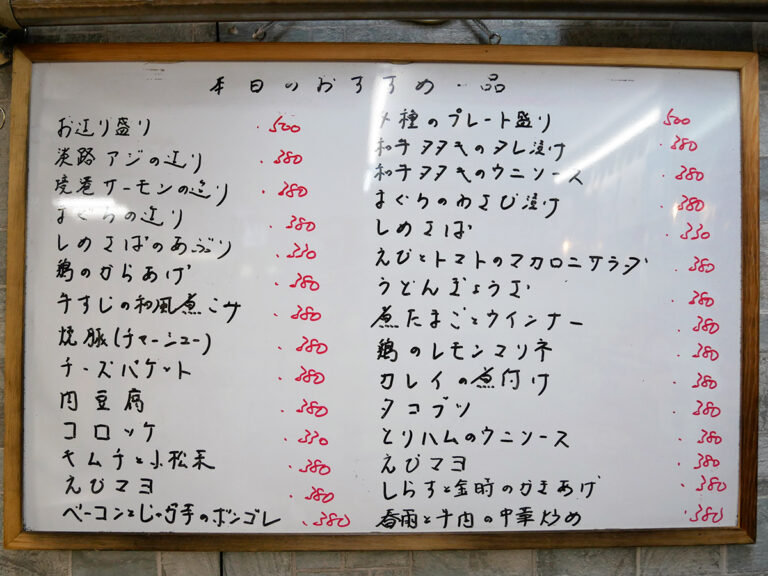 本日のおすすめ一品
お造り盛り .500
淡路アジの造り .380
境港サーモンの造り .380
まぐろの造り .380
しめさばのあぶり .330
鶏のからあげ .380
牛すじの和風煮こみ .380
焼豚(チャーシュー) .380
チーズバケット .380
肉豆腐 .380
コロッケ .330
キムチと小松菜 .380
えびマヨ .380
ベーコンとじゃが芋のボンゴレ .380
種のプレート盛り 500
和牛タタキのタレ漬け .380
和牛タタキのウニソース .380
まぐろのわさび漬け .380
しめさば .330
えびとトマトのマカロニサラダ .380
うどんぎょうざ .380
煮たまごとウインナー .380
鶏のレモンマリネ .380
カレイの煮付け .380
タコブツ .380
とりハムのウニソース .380
えびマヨ .380
しらすと金時のかきあげ .380
春雨と牛肉の中華炒め .380